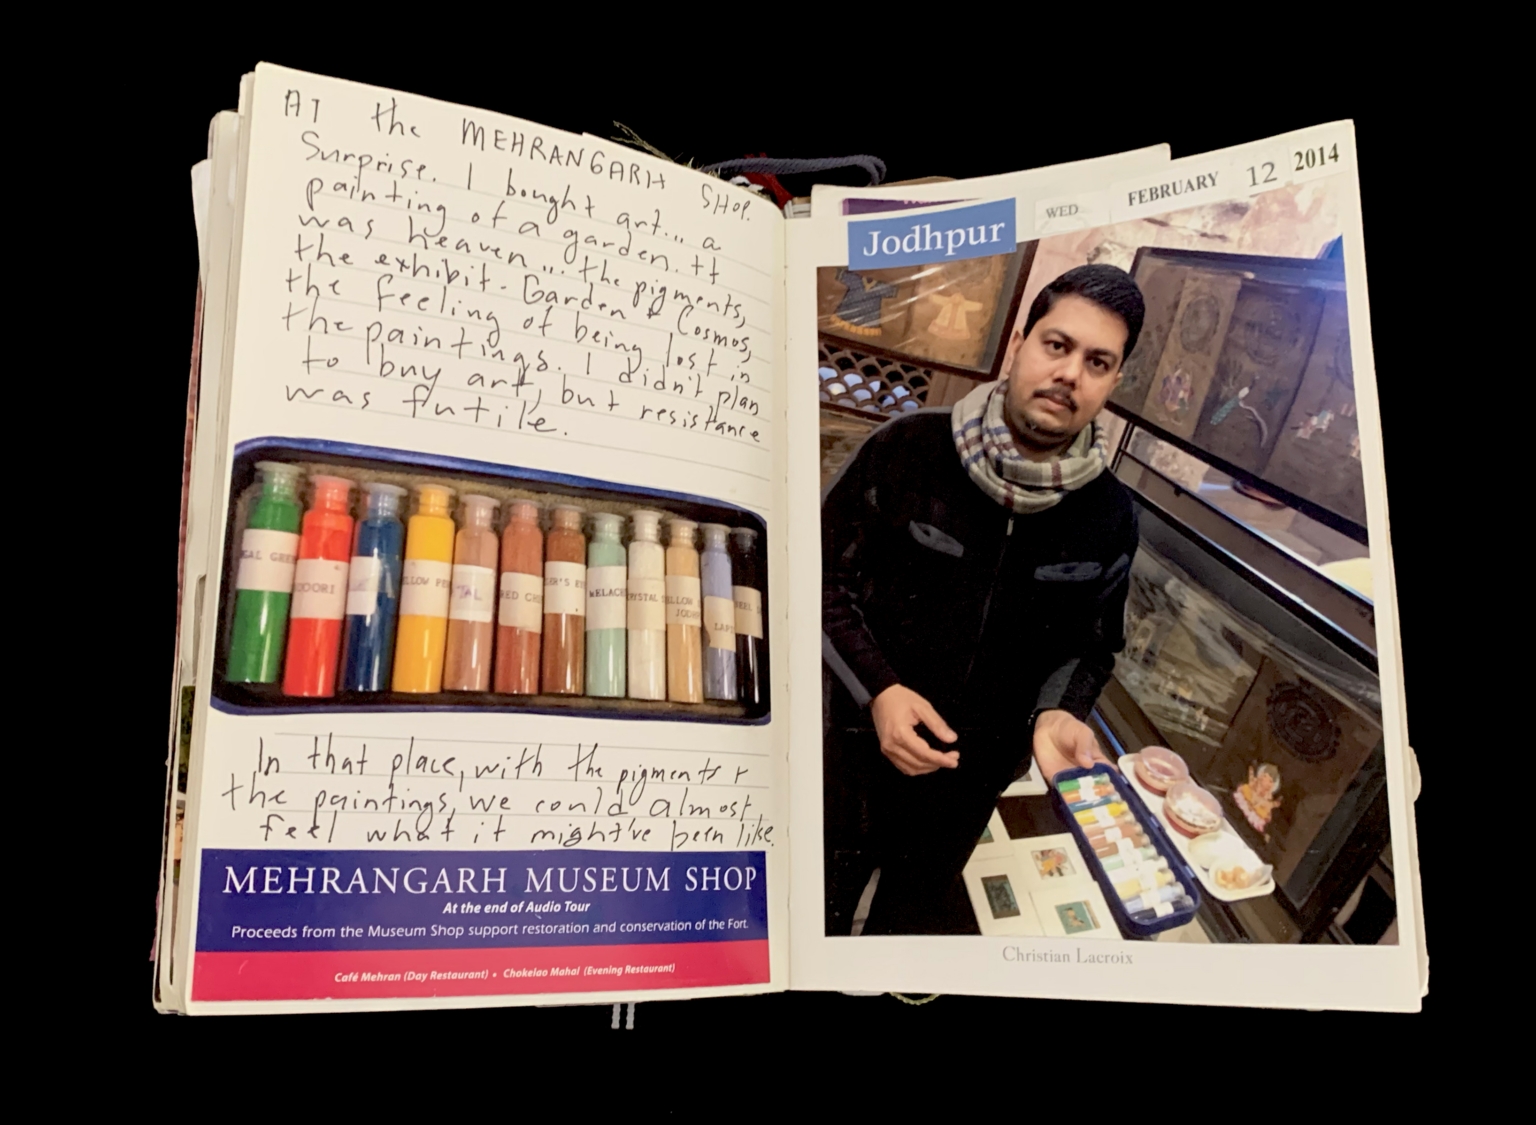 AT the MEHRANGARH SHOP.
Surprise. I bought art... a
painting of a garden. It
was heaven... the pigments,
the exhibit - Garden & Cosmos,
the feeling of being lost in
the paintings. I didn't plan
to buy art, but resistance
was futile.
GAL GREE
ODORI
LLOW PE
TAL
RED CH
ER'S E
WELACH
RYSTAL
ELLOW
JODH
LAPI
In that place, with the pigments &
the paintings, we could almost
feel what it might've been like.
MEHRANGARH MUSEUM SHOP
At the end of Audio Tour
Proceeds from the Museum Shop support restoration and conservation of the Fort.
Café Mehran (Day Restaurant) • Chokelao Mahal (Evening Restaurant)
Jodhpur
WED
FEBRUARY 12 2014
Christian Lacroix